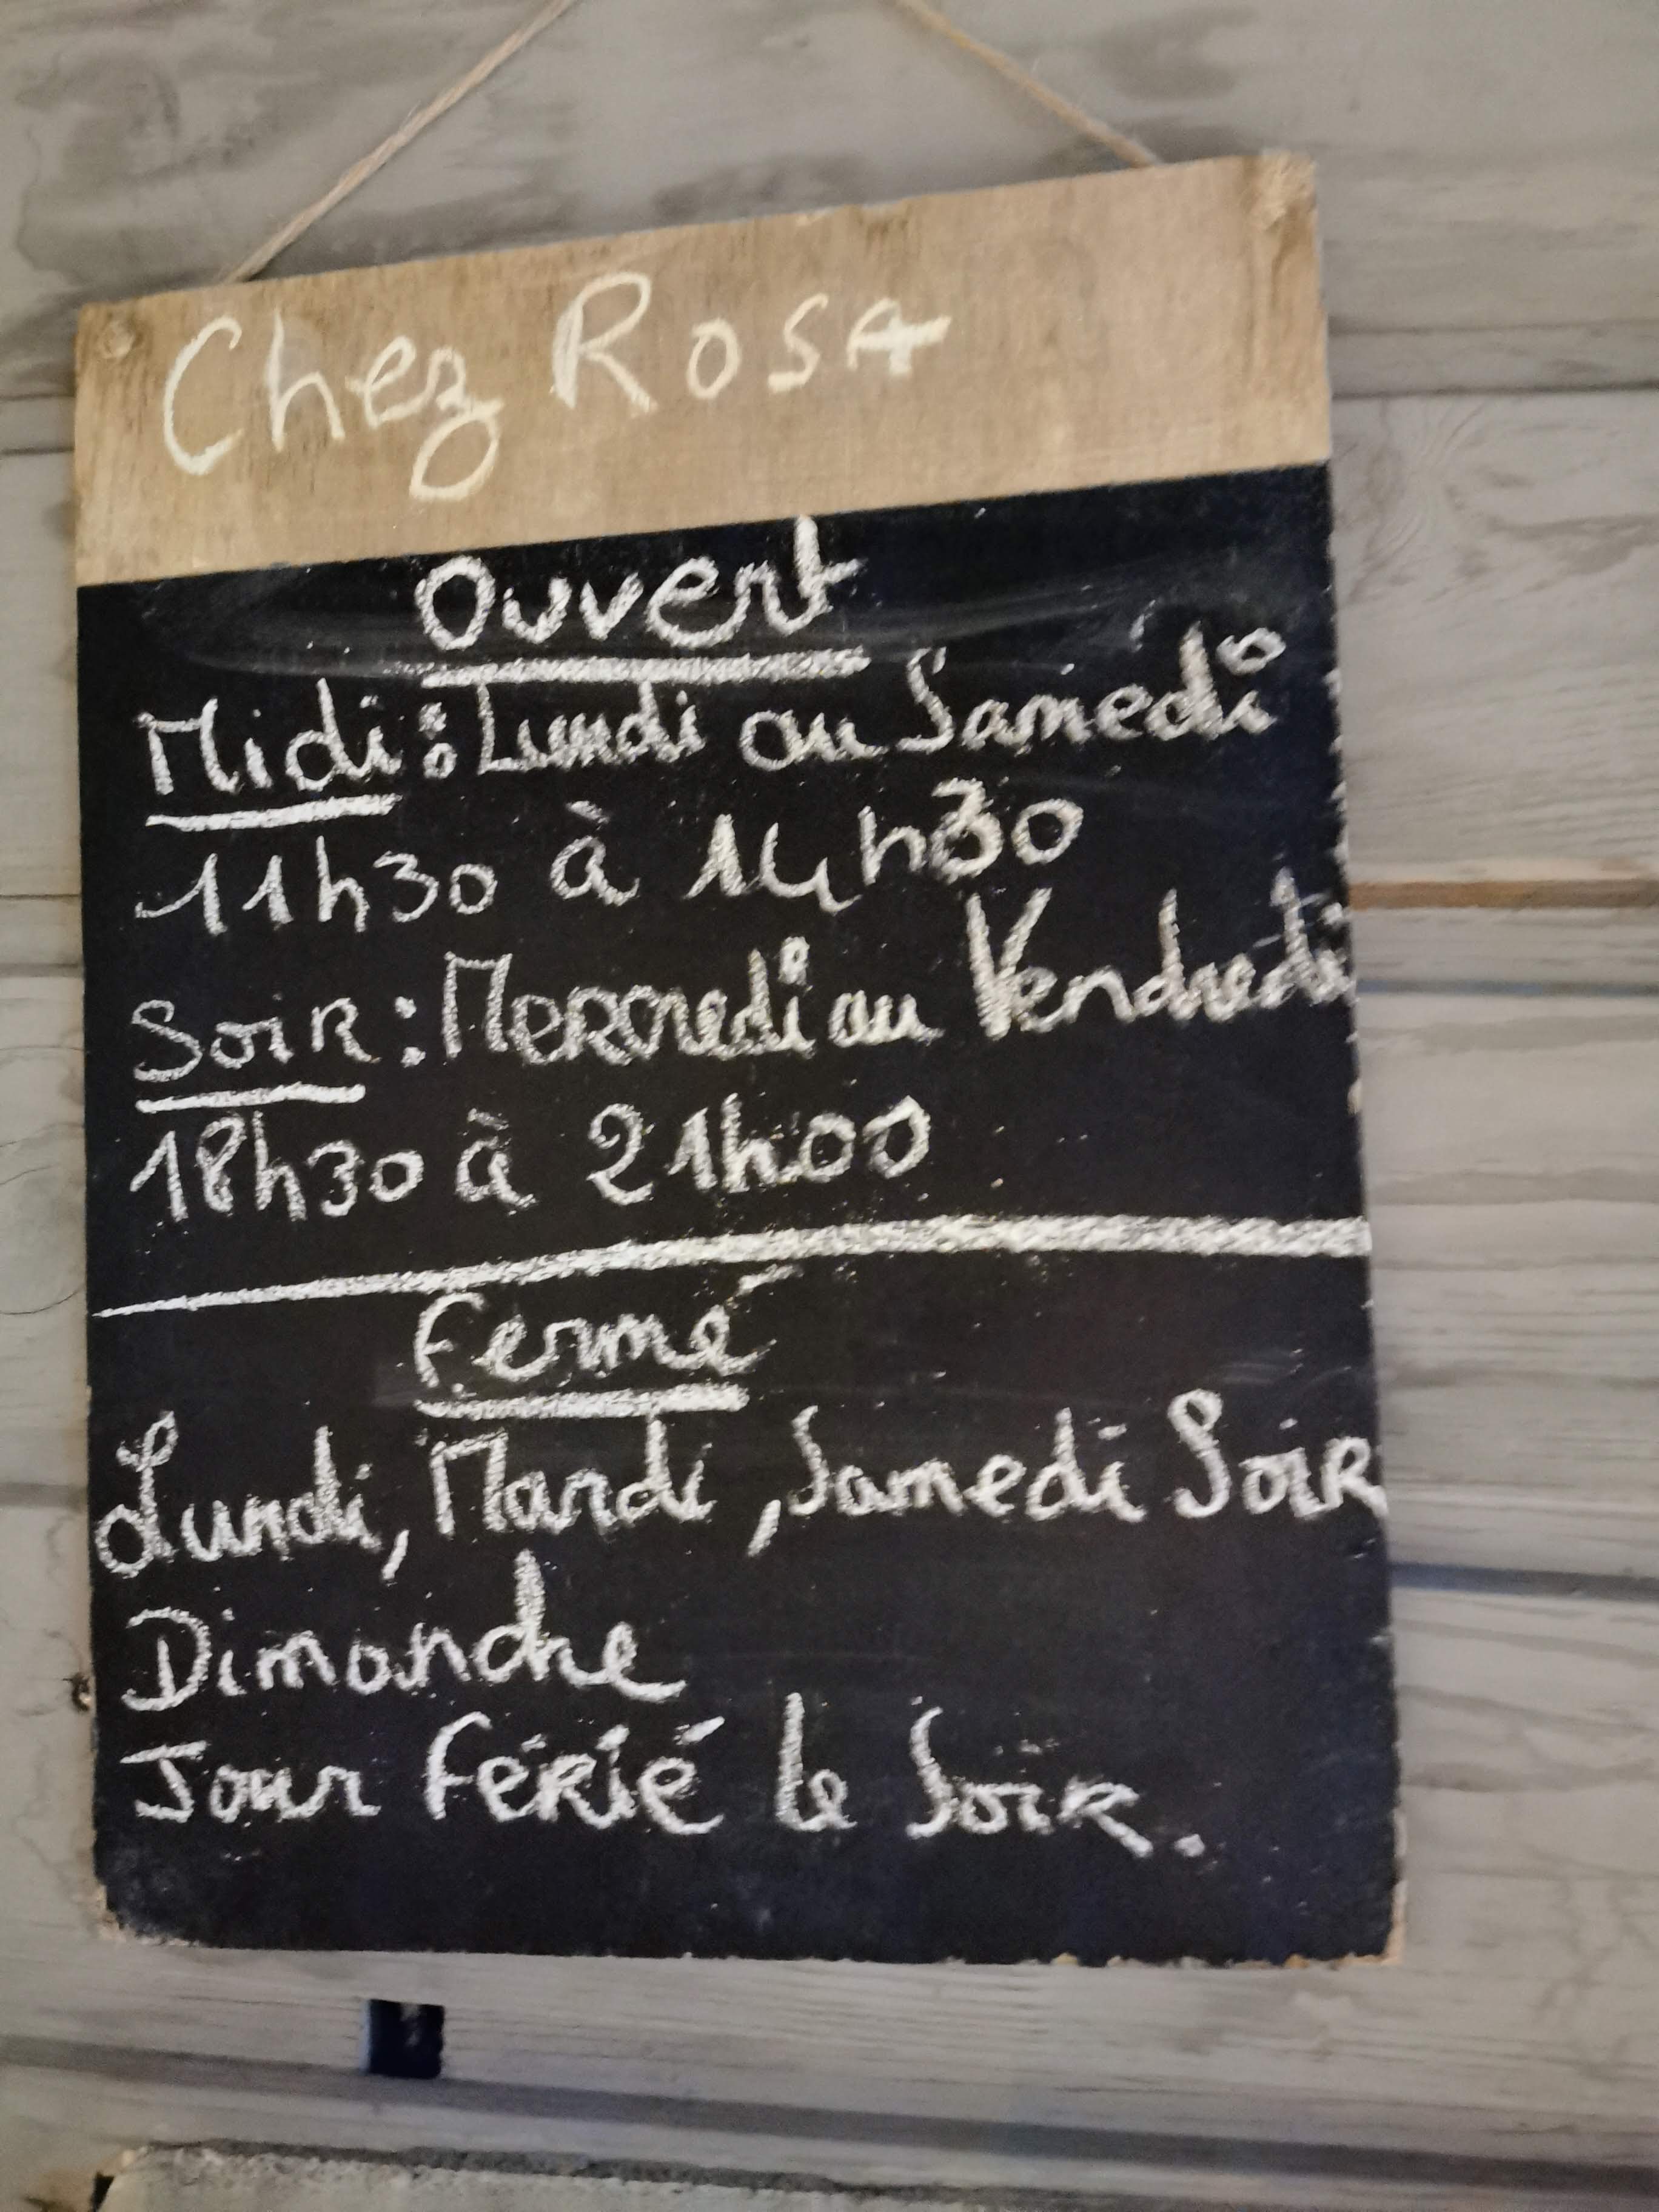 Chez Rosa
Ouvert
Midi : Lundi au Samedi
11h30 à 14h30
Soir : Mercredi au Vendredi
18h30 à 21h00
Fermé
Lundi, Mardi, Samedi Soir
Dimanche
Jour Férié le Soir.